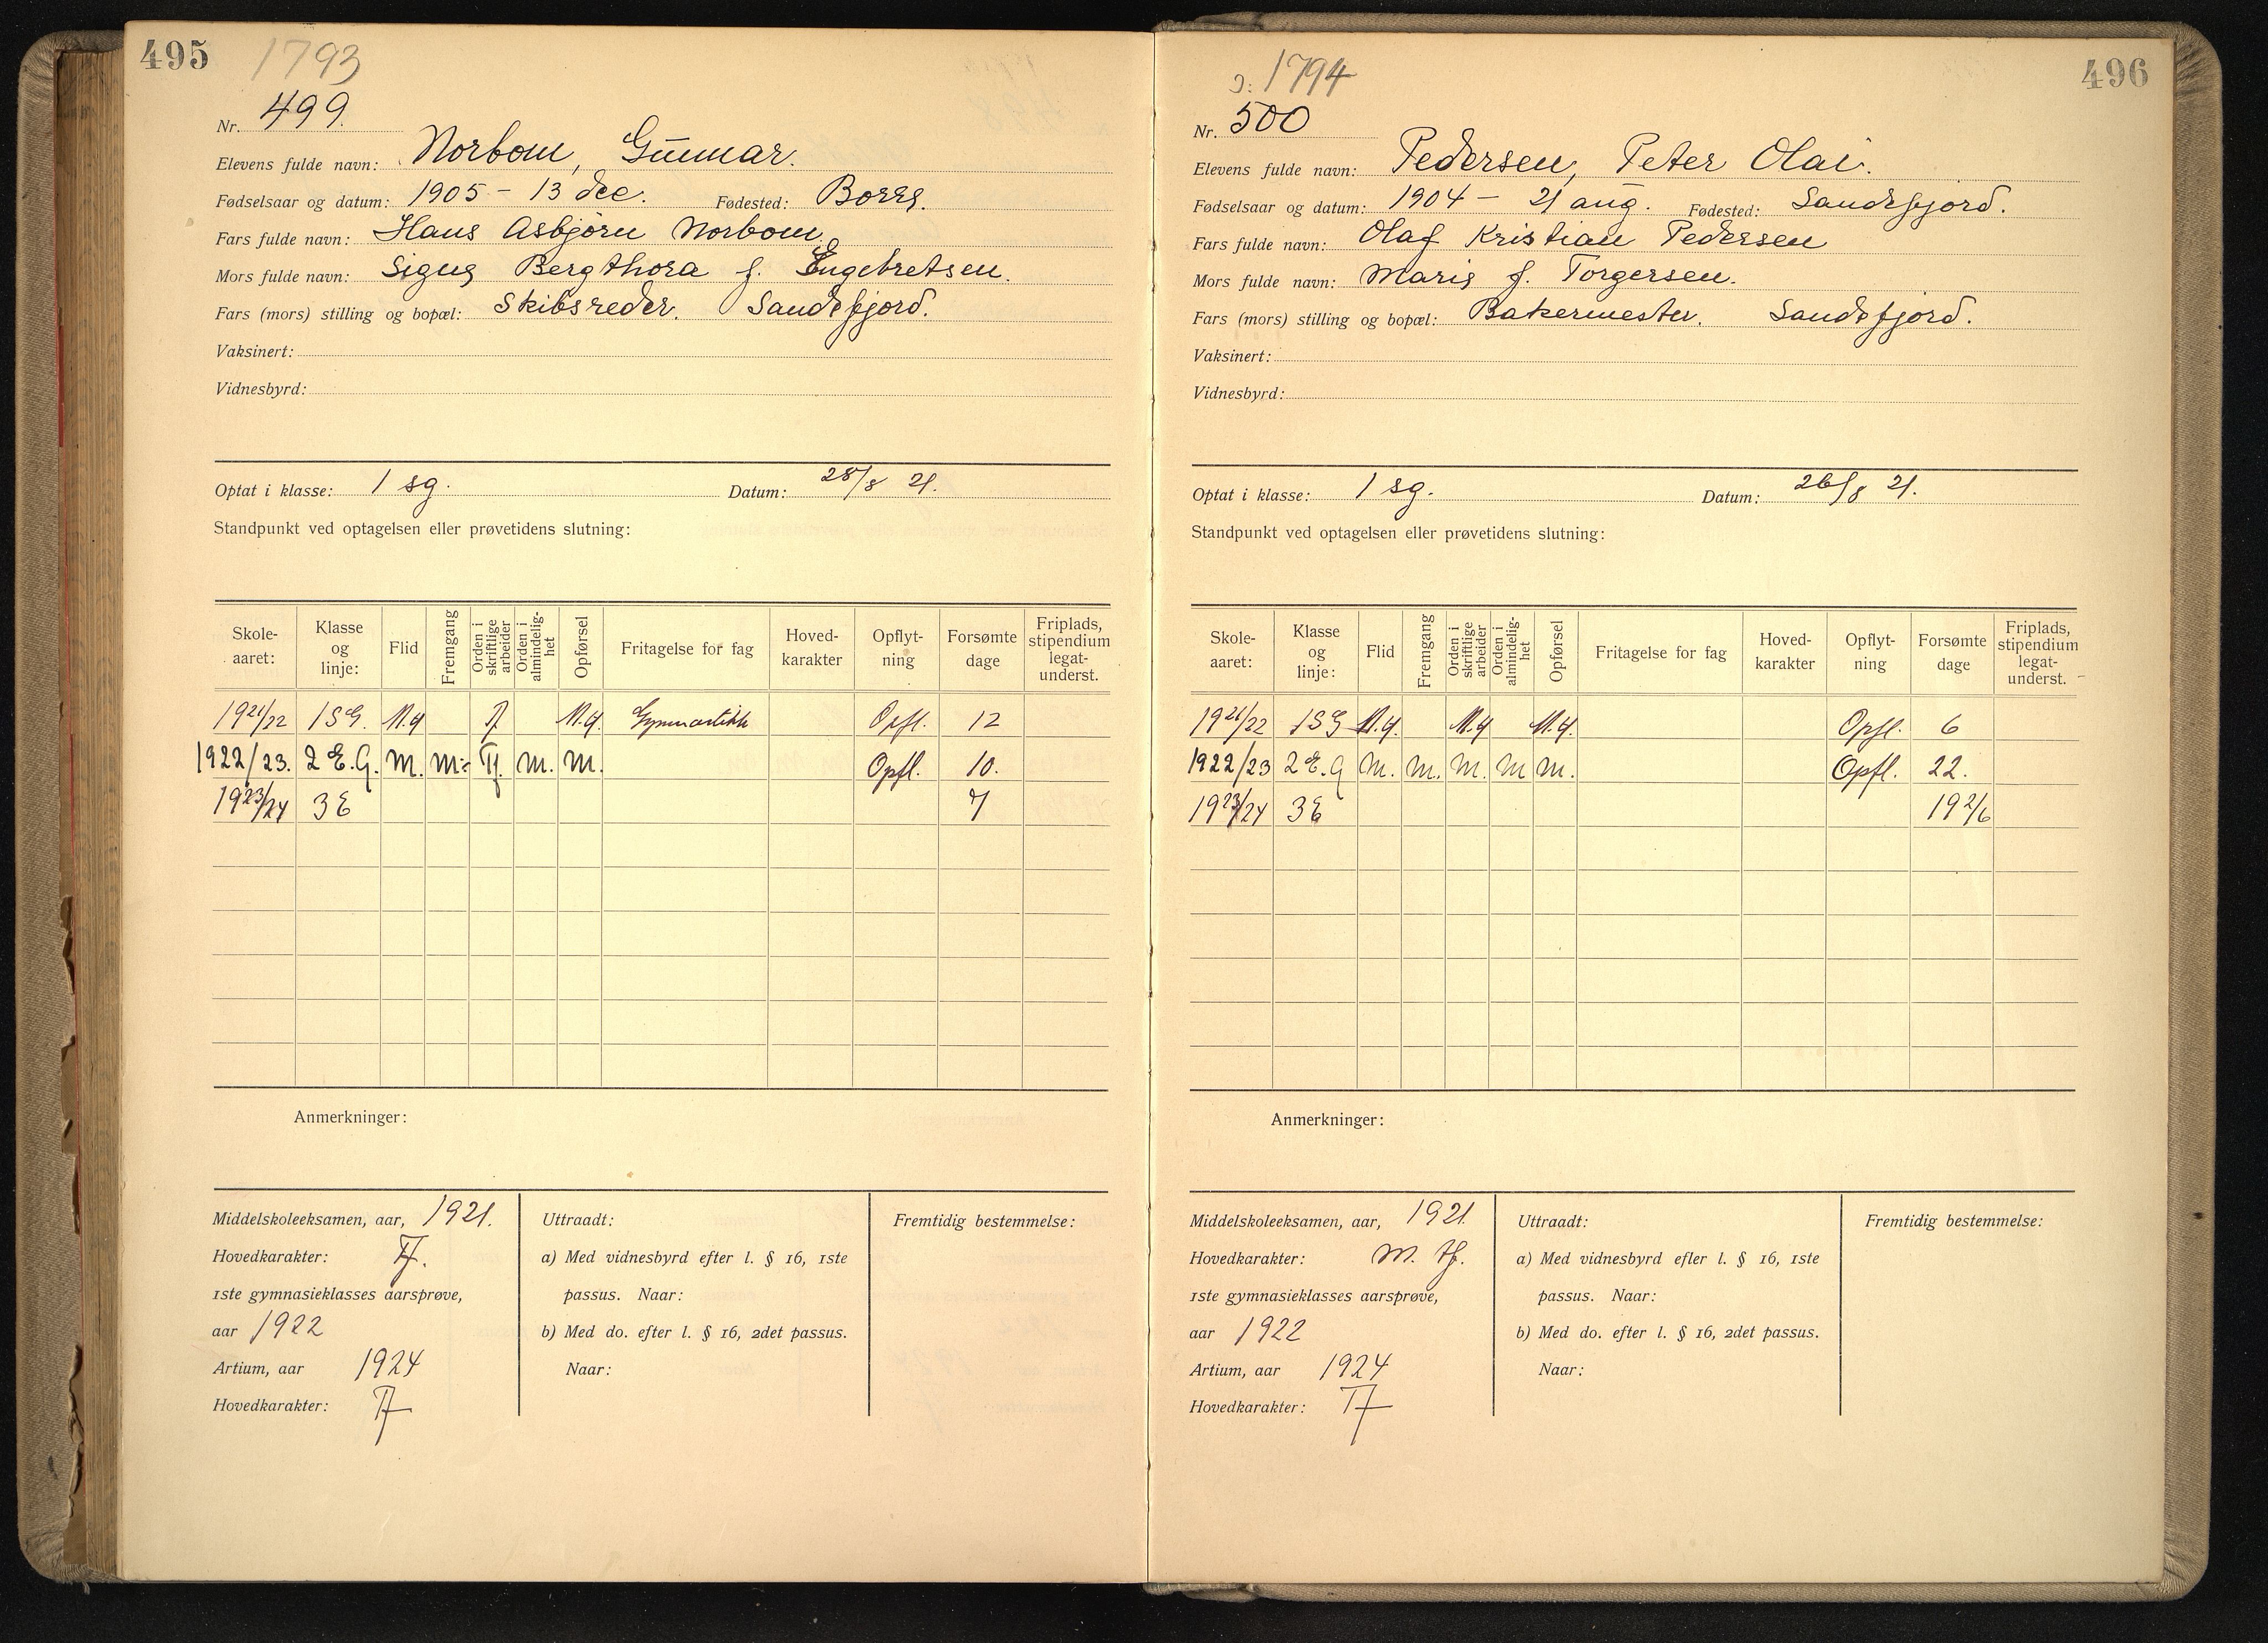 495 1793
Nr. 499.
Elevens fulde navn: Norbom, Gunnar.
Fødselsaar og datum: 1905 – 13 dec. Fødested: Borre.
Fars fulde navn: Hans Asbjørn Norbom
Mors fulde navn: Signe Bergthora f. Engebretsen.
Fars (mors) stilling og bopæl: Skibsreder. Sandefjord.
Vaksinert:
Vidnesbyrd:
Optat i klasse: 1 sg. Datum: 25/8 21.
Standpunkt ved optagelsen eller prøvetidens slutning:
Skole-aaret: Klasse og linje: Flid Fremgang Orden i skriftlige arbeider Orden i almindelig-het Opførsel Fritagelse for fag Hoved-karakter Opflyt-ning Forsømte dage Friplads, stipendium legat-underst.
1921/22 1SG. M.g T M.g. Gymnastikk Opfl. 12
1922/23. 2 E.G. M. M÷ Tf. M. M. Opfl. 10.
1923/24 3E 7
Anmerkninger:
Middelskoleeksamen, aar, 1921.
Hovedkarakter: Tf.
1ste gymnasieklasses aarsprøve,
aar 1922
Artium, aar 1924
Hovedkarakter: Tf
Uttraadt:
a) Med vidnesbyrd efter l. § 16, 1ste
passus. Naar:
b) Med do. efter l. § 16, 2det passus.
Naar:
Fremtidig bestemmelse:
1794 496
Nr. 500
Elevens fulde navn: Pedersen, Peter Olai.
Fødselsaar og datum: 1904 – 21 aug. Fødested: Sandefjord.
Fars fulde navn: Olaf Kristian Pedersen
Mors fulde navn: Marie f. Torgersen.
Fars (mors) stilling og bopæl: Bakermester. Sandefjord.
Vaksinert:
Vidnesbyrd:
Optat i klasse: 1 sg. Datum: 26/8 21.
Standpunkt ved optagelsen eller prøvetidens slutning:
Skole-aaret: Klasse og linje: Flid Fremgang Orden i skriftlige arbeider Orden i almindelig-het Opførsel Fritagelse for fag Hoved-karakter Opflyt-ning Forsømte dage Friplads, stipendium legat-underst.
1921/22 1SG M.g. M.g M.g. Opfl. 6
1922/23 2 E.G M. M. M. M M. Opfl. 22.
1923/24 3E 19 2/6
Anmerkninger:
Middelskoleeksamen, aar, 1921
Hovedkarakter: M. Tf.
1ste gymnasieklasses aarsprøve,
aar 1922
Artium, aar 1924
Hovedkarakter: Tf
Uttraadt:
a) Med vidnesbyrd efler l. § 16, 1ste
passus. Naar:
b) Med do. efter l. § 16, 2det passus.
Naar:
Fremtidig bestemmelse: